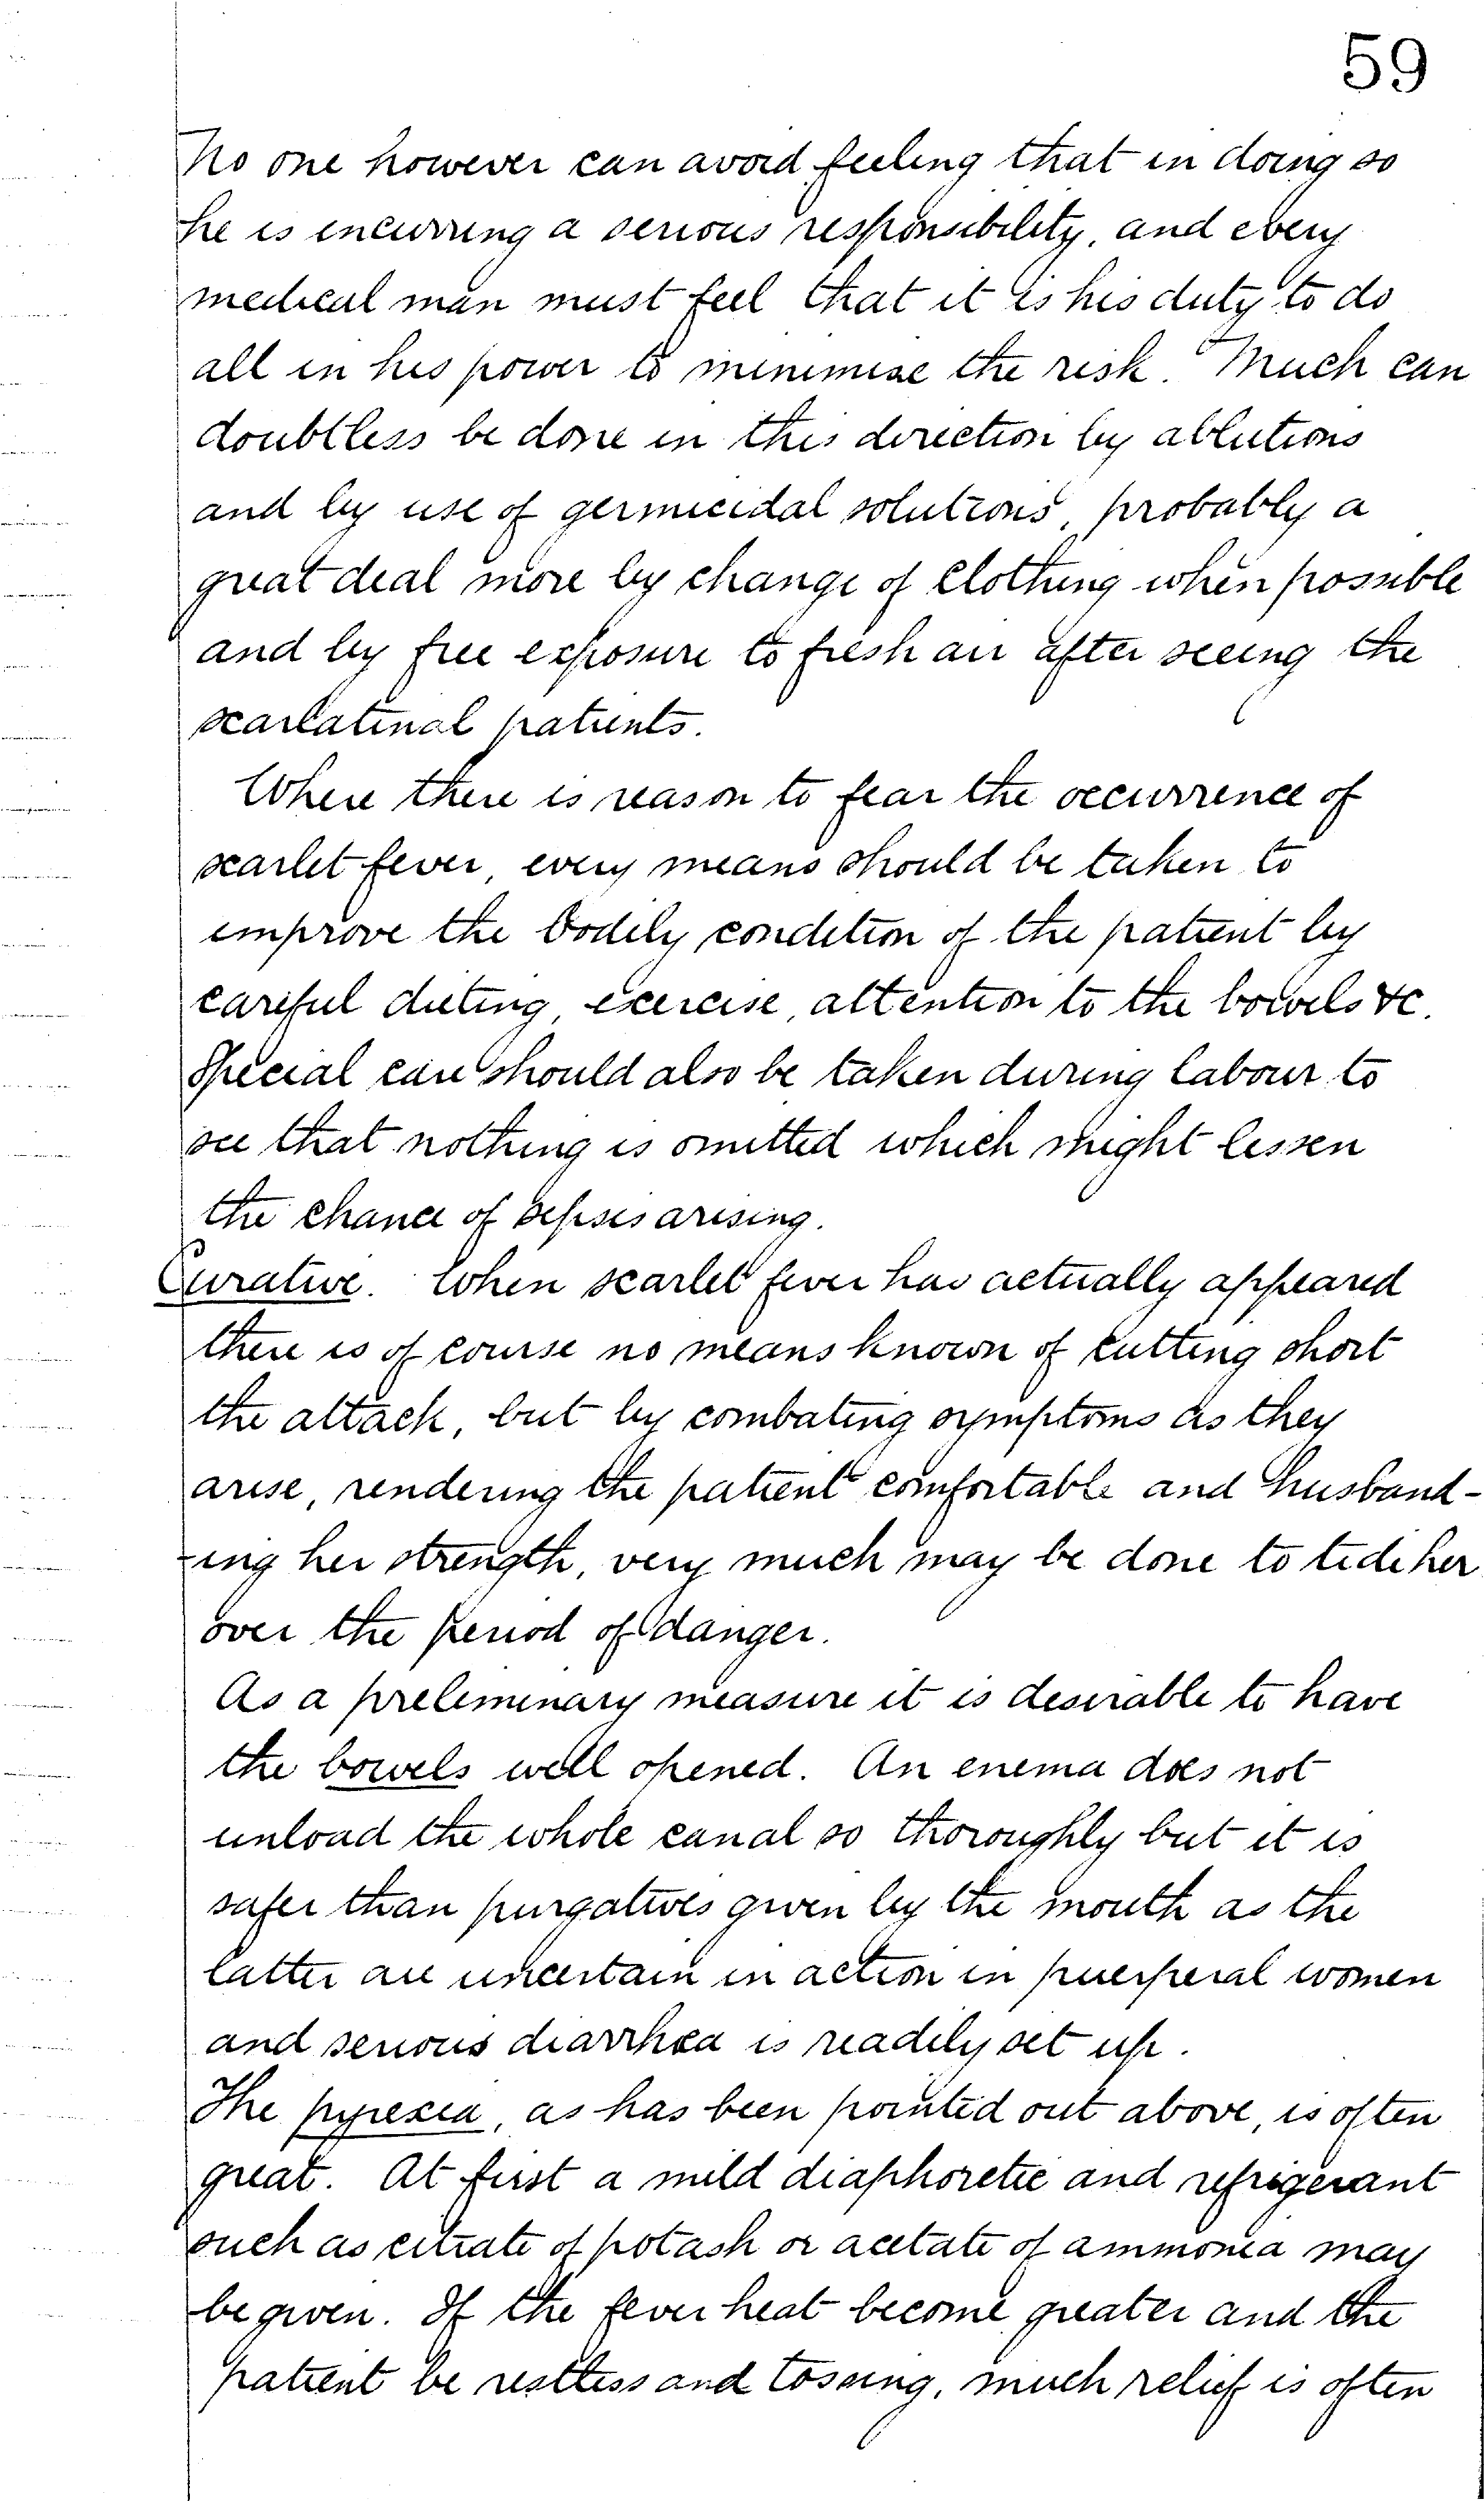 59
No one however can avoid feeling that in doing so
he is incurring a serious responsibility, and every
medical man must feel that it is his duty to do
all in his power to minimise the risk. Much can
doubtless be done in this direction by ablutions
and by use of germicidal solutions, probably a
great deal more by change of clothing when possible
and by free exposure to fresh air after seeing the
scarlatinal patients.
Where there is reason to fear the occurrence of
scarlet fever, every means should be taken to
improve the bodily condition of the patient by
careful dieting, exercise, attention to the bowels &c.
Special care should also be taken during labour to
see that nothing is omitted which might lessen
the chance of sepsis arising.
Curative. When scarlet fever has actually appeared
there is of course no means known of cutting short
the attack, but by combating symptoms as they
arise, rendering the patient comfortable and husband-
-ing her strength, very much may be done to tide her
over the period of danger.
As a preliminary measure it is desirable to have
the bowels well opened. An enema does not
unload the whole canal so thoroughly but it is
safer than purgatives given by the mouth as the
latter are uncertain in action in puerperal women
and serious diarrhœa is readily set up.
The pyrexia, as has been pointed out above, is often
great. At first a mild diaphoretic and refrigerant
such as citrate of potash or acetate of ammonia may
be given. If the fever heat become greater and the
patient be restless and tossing, much relief is often